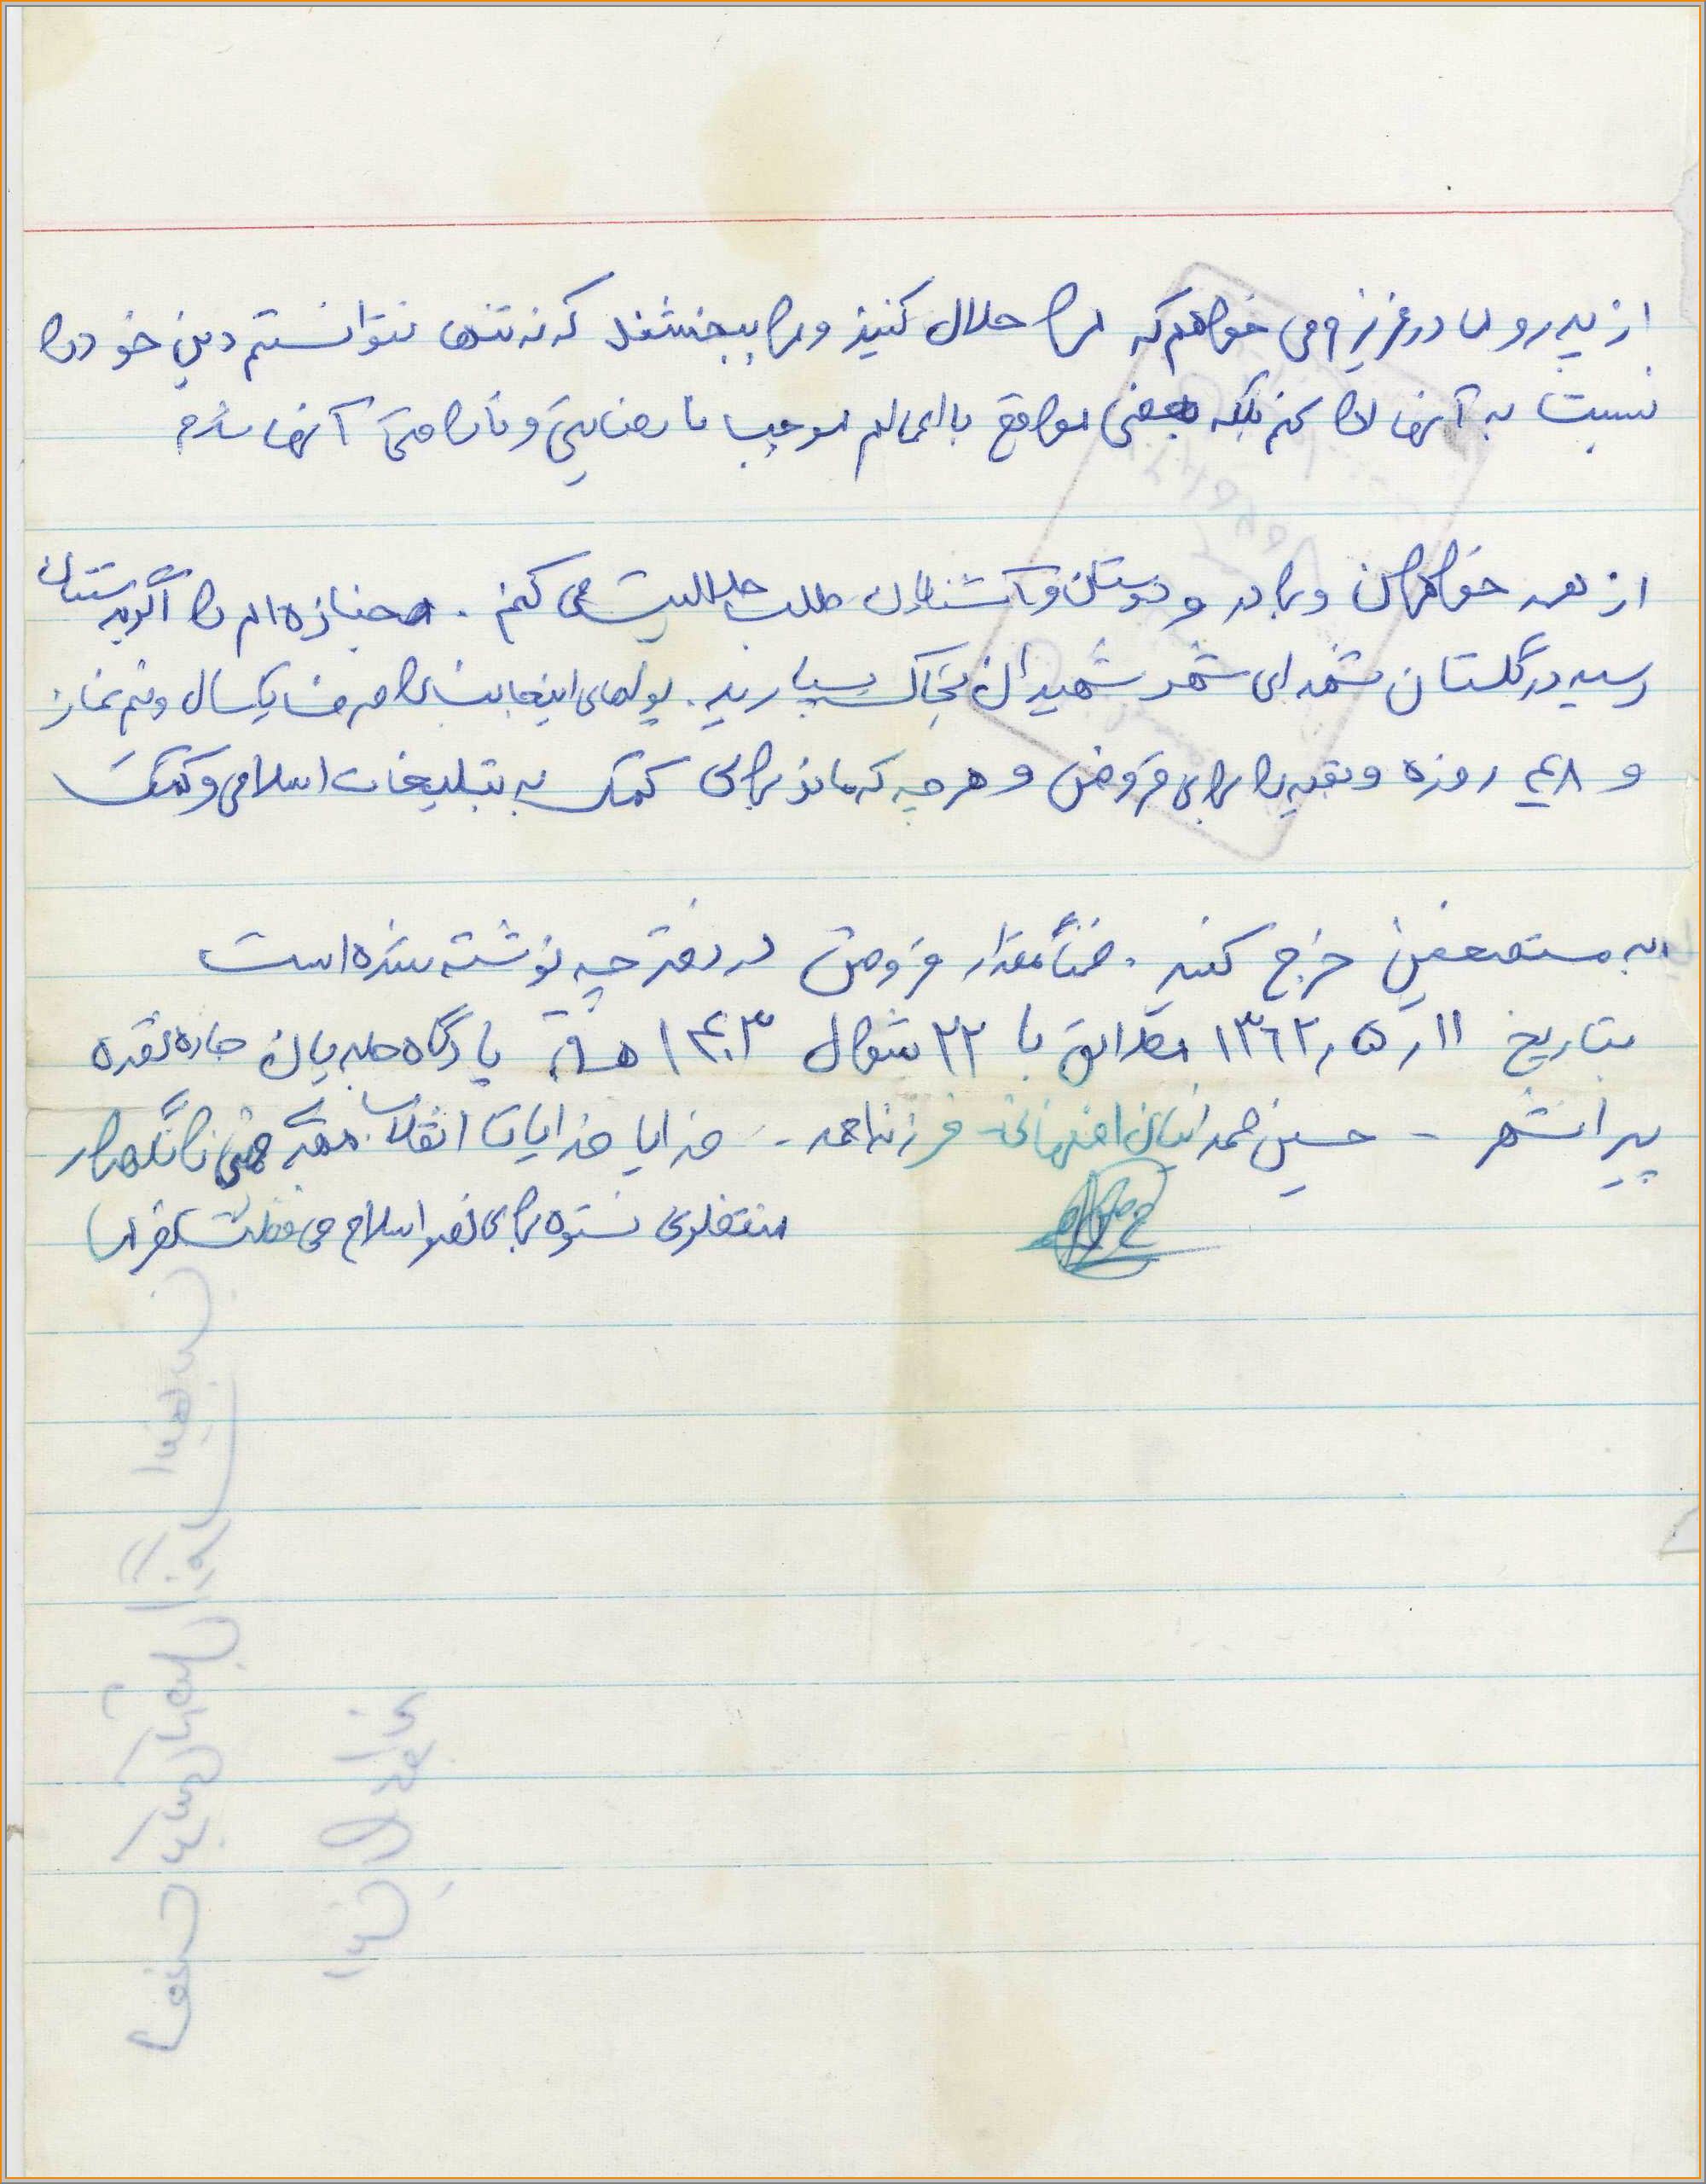 از پدر و مادر عزیزم می خواهم که مرا حلال کنید و مرا ببخشند که نه تنها نتوانستم دین خود را
نسبت به آنها ادا کنم بلکه بعضی مواقع با اعمالم موجب نارضایتی و ناراحتی آنها شدم
از همه خواهران و برادر و دوستان و آشنایان طلب حلالیت می کنم . جنازه ام را اگر بدستتان
رسید در گلستان شهدای شهر شهیدان بخاک بسپارید . پولهای اینجانب را صرف یکسال و نیم نماز
و ۴۸ روزه و بقیه را برای قروض و هر چه که ماند برای کمک به تبلیغات اسلامی و کمک
به مستضعفین خرج کنید . ضمناً مقدار قروض در دفترچه نوشته شده است
بتاریخ ۱۱ ر ۵ ر ۱۳۶۲ مطابق با ۲۲ شوال ۱۴۰۳ هـ ق پادگاه جلدیان جاده نقده
پیرانشهر - حسین احمد فرزند احمد - خدایا خدایا تا انقلاب مهدی نگهدار
منتظری نستوه برای اسلام محافظت بفرما